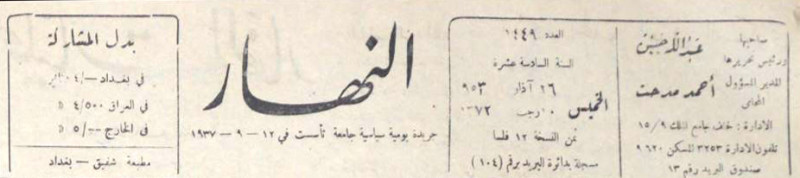 صاحبها
ورئيس تحريرها
عبد الله حسن
المدير المسؤول
المحامي
أحمد مدحت
الادارة : خلف جامع الملك ١٥/٩
تلفون الادارة ٣٢٥٣ المسكن ٩٦٢٠
صندوق البريد رقم ١٣
العدد ١٤٤٩
السنة السادسة عشرة
الخميس
٢٦ آذار ٩٥٣
رجب
ثمن النسخة ١٢ فلسا
مسجلة بدائرة البريد برقم (١٠٤)
النهار
جريدة يومية سياسية جامعة تأسست في ١٢ – ٩ – ١٩٣٧
بدل المشاركة
في بغداد
في العراق ٤/٥٠٠
في الخارج ٥/٠٠
مطبعة شفيق – بغداد